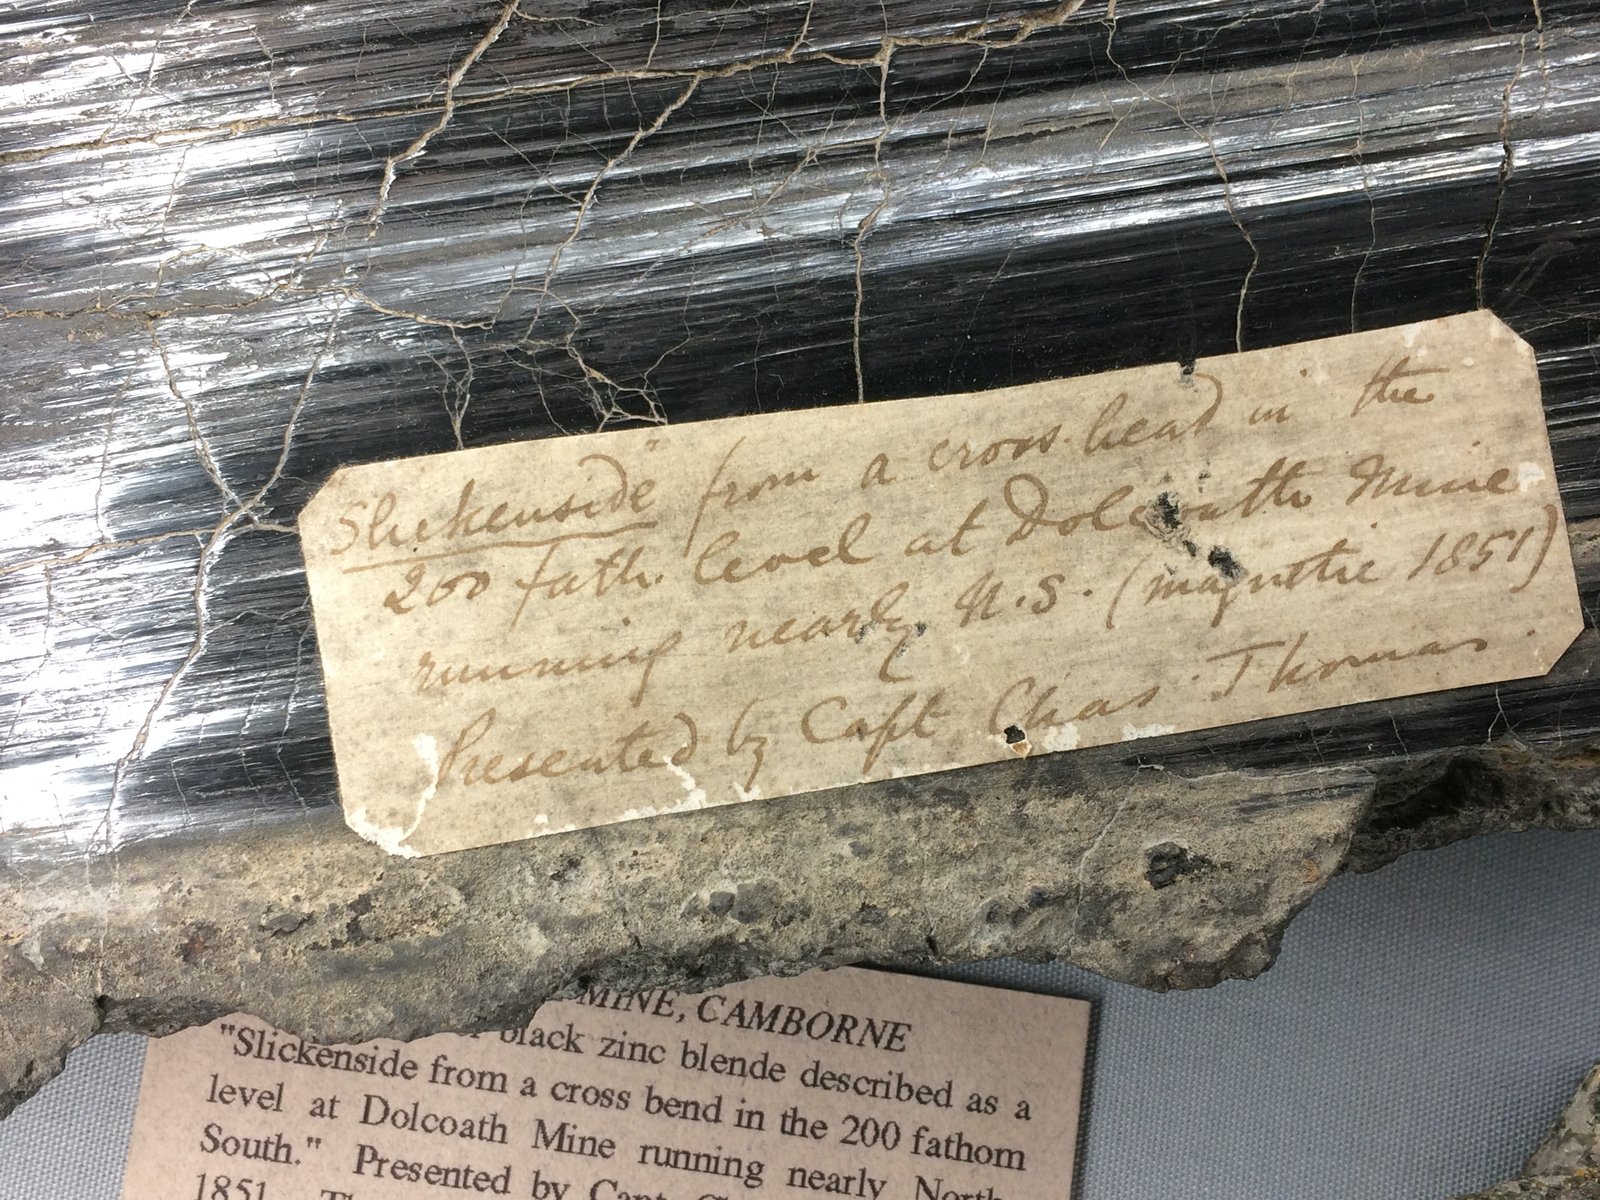 "Slickenside" from a cross-head in the
200 fath. level at Dolcoath Mine
running nearly N.S. (magnetic 1851)
Presented by Capt Chas Thomas.
MINE, CAMBORNE
black zinc blende described as a
"Slickenside from a cross bend in the 200 fathom
level at Dolcoath Mine running nearly North
South." Presented by Capt
1851